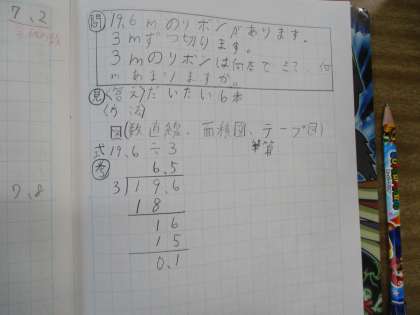 7,2
7,8
問 19,6mのリボンがあります。
3mずつ切ります。
3mのリボンは何本できて、何
mあまりますか。
見 (答え)だいたい6本
(方法)
図(数直線、面積図、テープ図)
式 19,6÷3 筆算
考 6.5
3 19.6
18
16
15
0.1